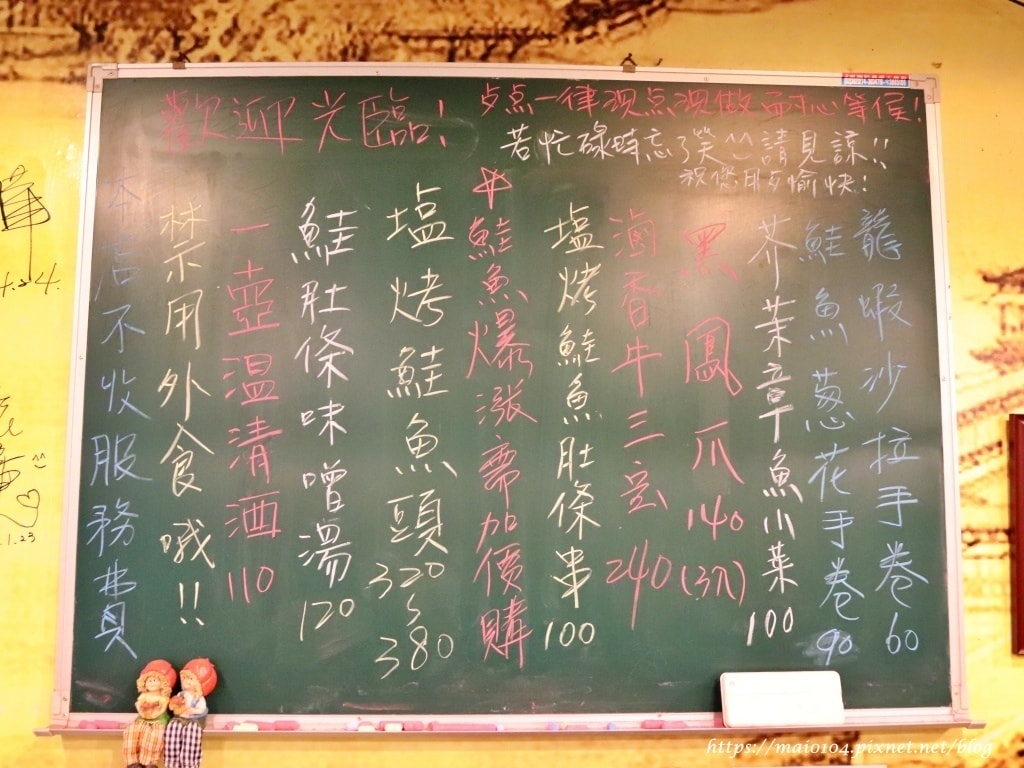 歡迎光臨!
点点一律現点現做 耐心等侯!
若忙碌時忘了笑^^請見諒!!
祝您用歺愉快!
龍蝦沙拉手卷 60
鮭魚葱花手卷 90
芥茉章魚小菜 100
黑鳳爪 140 (3爪)
滷香牛三宝 240
塩烤鮭魚肚條串 100
鮭魚爆漲需加價購
塩烤鮭魚頭 320~380
鮭肚條味噌湯 120
一壺温清酒 110
禁示用外食哦!!
本店不收服務費
https://maio104.pixnet.net/blog